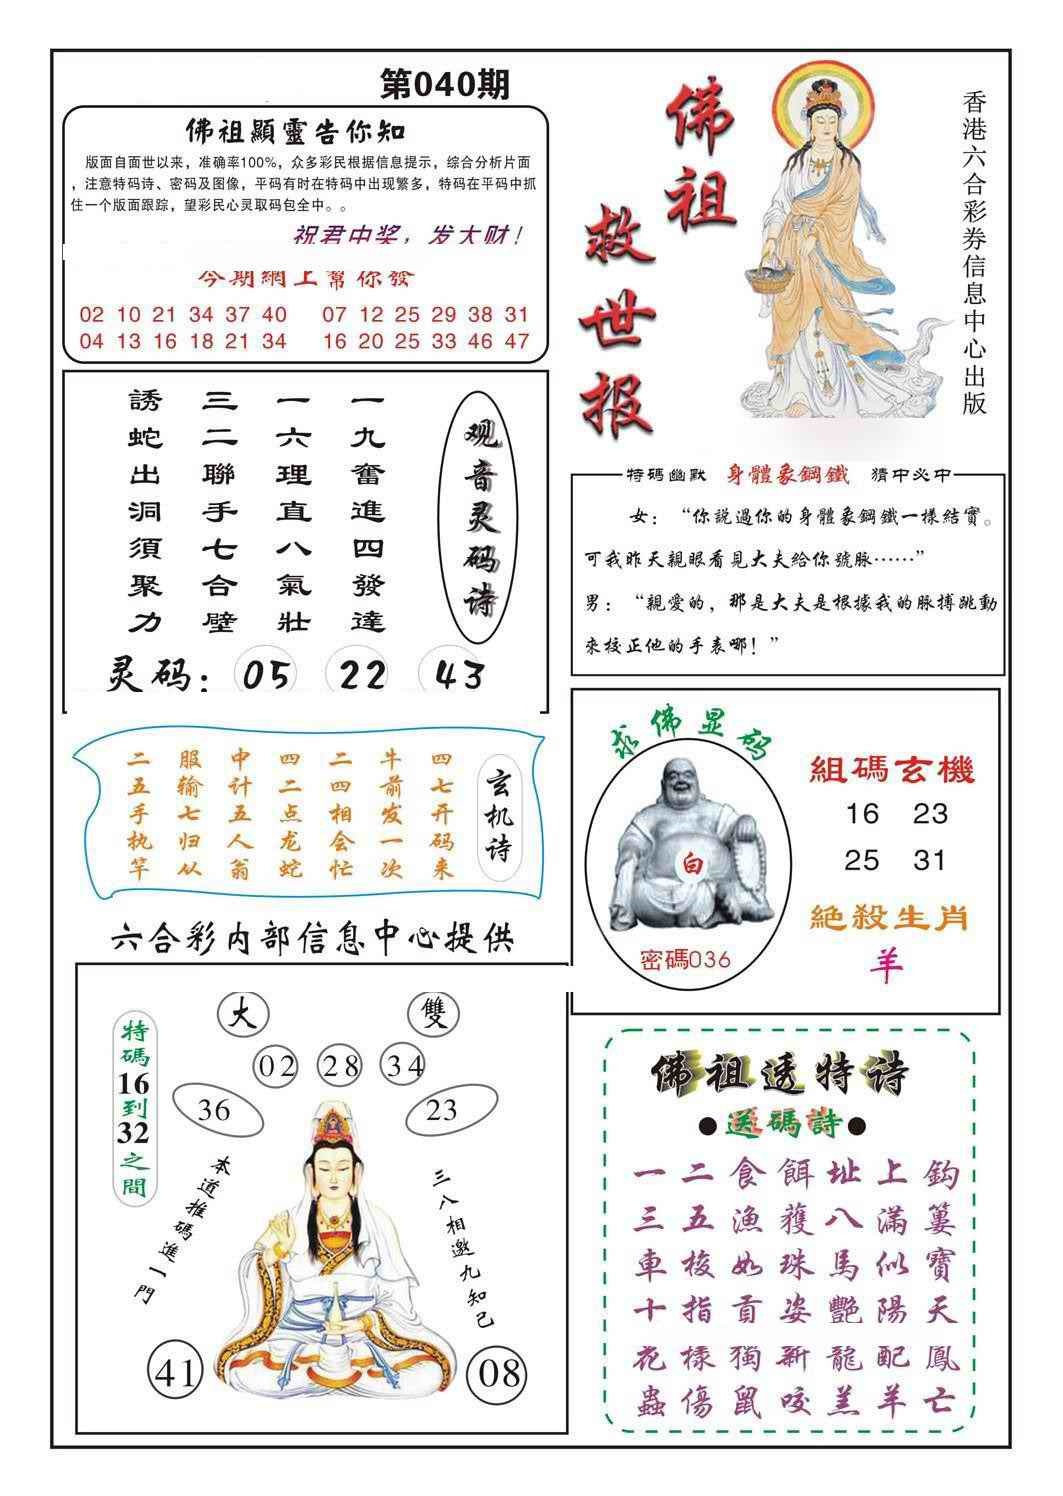 第040期
佛祖顯靈告你知
版面自面世以来，准确率100%，众多彩民根据信息提示，综合分析片面
，注意特码诗、密码及图像，平码有时在特码中出现繁多，特码在平码中抓
住一个版面跟踪，望彩民心灵取码包全中。。
祝君中奖，发大财！
今期網上幫你發
02 10 21 34 37 40 07 12 25 29 38 31
04 13 16 18 21 34 16 20 25 33 46 47
佛祖
救世报
香港六合彩券信息中心出版
观音灵码诗
一九奮進四發達
一六理直八氣壯
三二聯手七合壁
誘蛇出洞須聚力
灵码：05 22 43
特碼幽默 身體象鋼鐵 猜中必中
女：“你説過你的身體象鋼鐵一樣結實。
可我昨天親眼看見大夫給你號脉……”
男：“親愛的，那是大夫是根據我的脉搏跳動
來校正他的手表哪！”
玄机诗
四七开码来
牛前发一次
二四相会忙
四二点龙蛇
中计五人翁
服输七归从
二五手执竿
求佛显码
白
密碼036
組碼玄機
16 23
25 31
絕殺生肖
羊
六合彩内部信息中心提供
大 雙
02 28 34
36 23
特碼16到32之間
本道推碼進一門
三八相邀九知己
41 08
佛祖透特诗
●送碼詩●
一二食餌址上鈎
三五漁獲八滿簍
車梭如珠馬似寶
十指貢姿艷陽天
花樣獨新龍配鳳
蟲傷鼠咬羔羊亡